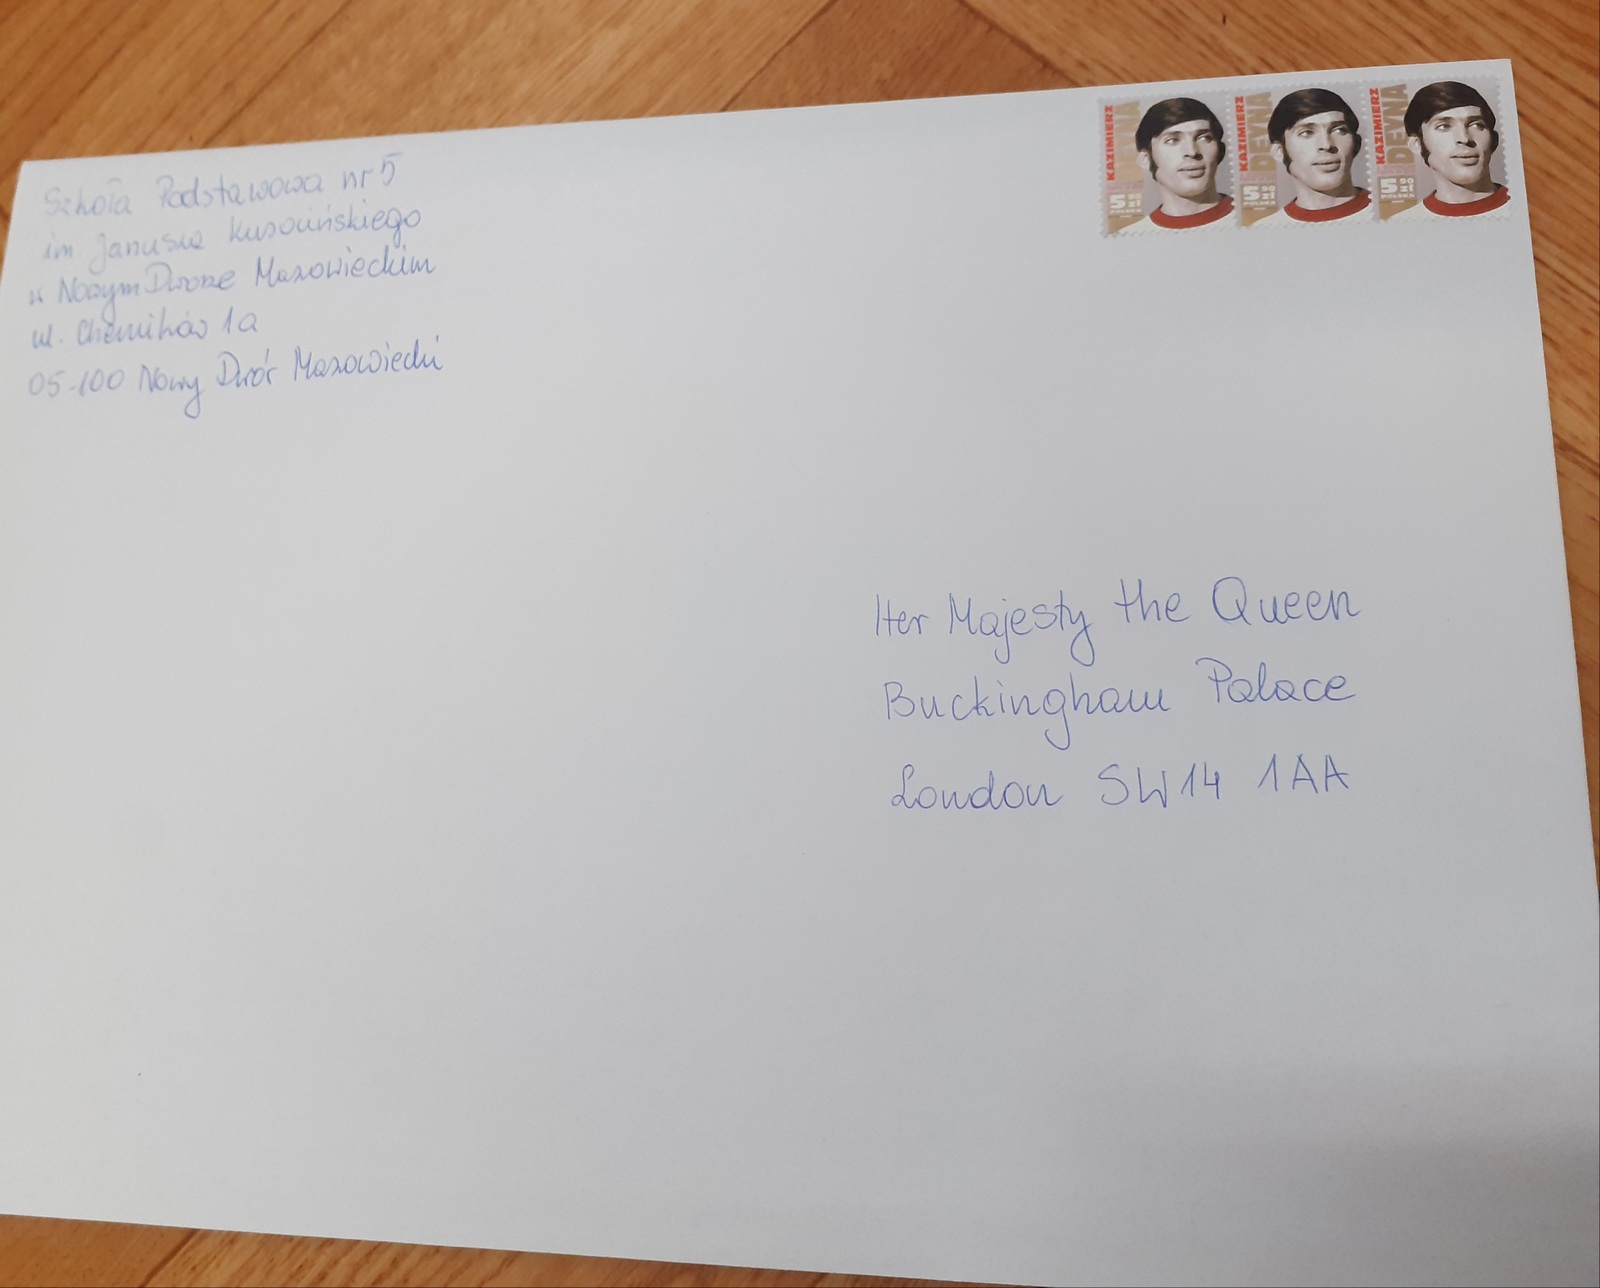 Szkoła Podstawowa nr 5
im. Janusza Kusocińskiego
w Nowym Dworze Mazowieckim
ul. Chemików 1a
05-100 Nowy Dwór Mazowiecki
KAZIMIERZ
DEYNA
5 90 zł
POLSKA
KAZIMIERZ
DEYNA
5 90 zł
POLSKA
KAZIMIERZ
DEYNA
5 90 zł
POLSKA
Her Majesty the Queen
Buckingham Palace
London SW14 1AA